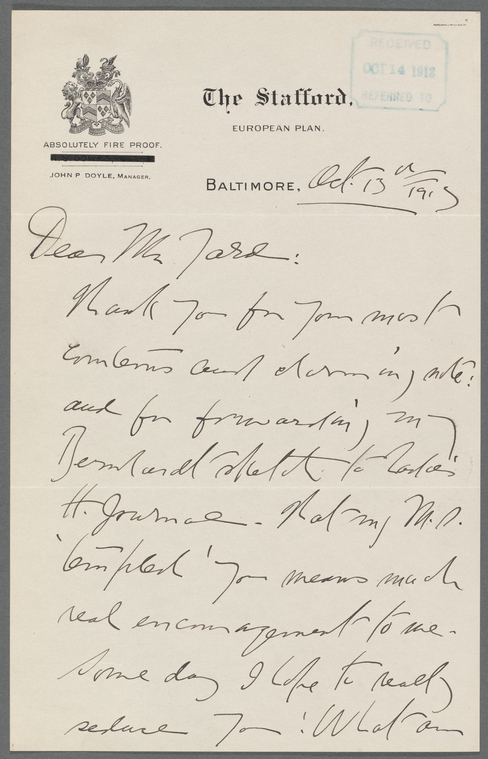 RECEIVED
OCT 14 1913
REFERRED TO
The Stafford,
EUROPEAN PLAN.
ABSOLUTELY FIRE PROOF.
JOHN P DOYLE, MANAGER.
BALTIMORE, Oct. 13th 1913
Dear Mr Tard:
Thank you for your most
courteous and charming note:
and for forwarding my
Bernhardt sketch to Ladies
H. Journal. That my M.S.
'tempted' you means much
real encouragement to me.
Some day I hope to really
seduce you! What an